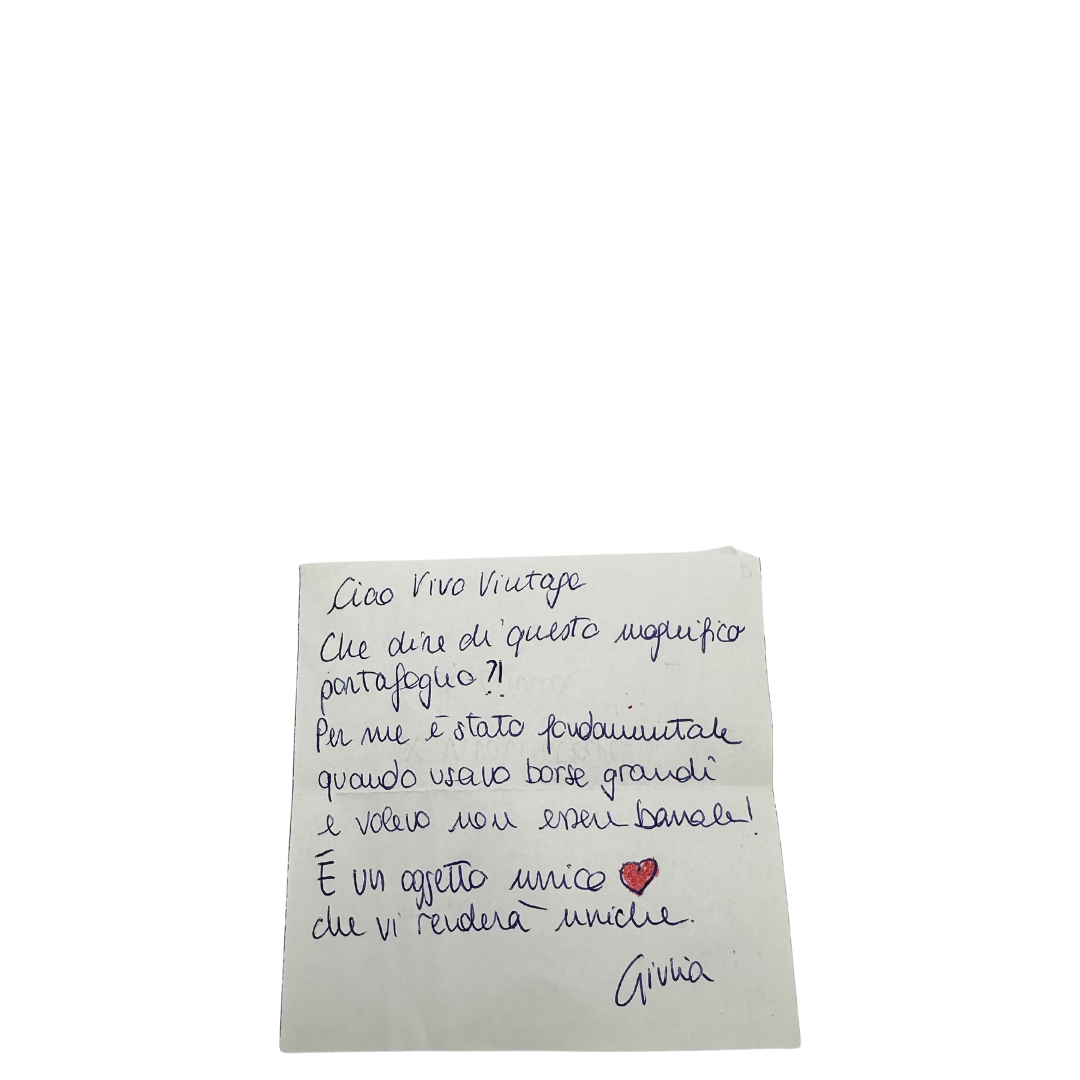 Ciao Vivo Vintage
Che dire di questo magnifico
portafoglio?!
Per me è stato fondamentale
quando usavo borse grandi
e volevo non essere banale!
È un oggetto unico ❤
che vi renderà uniche.
Giulia